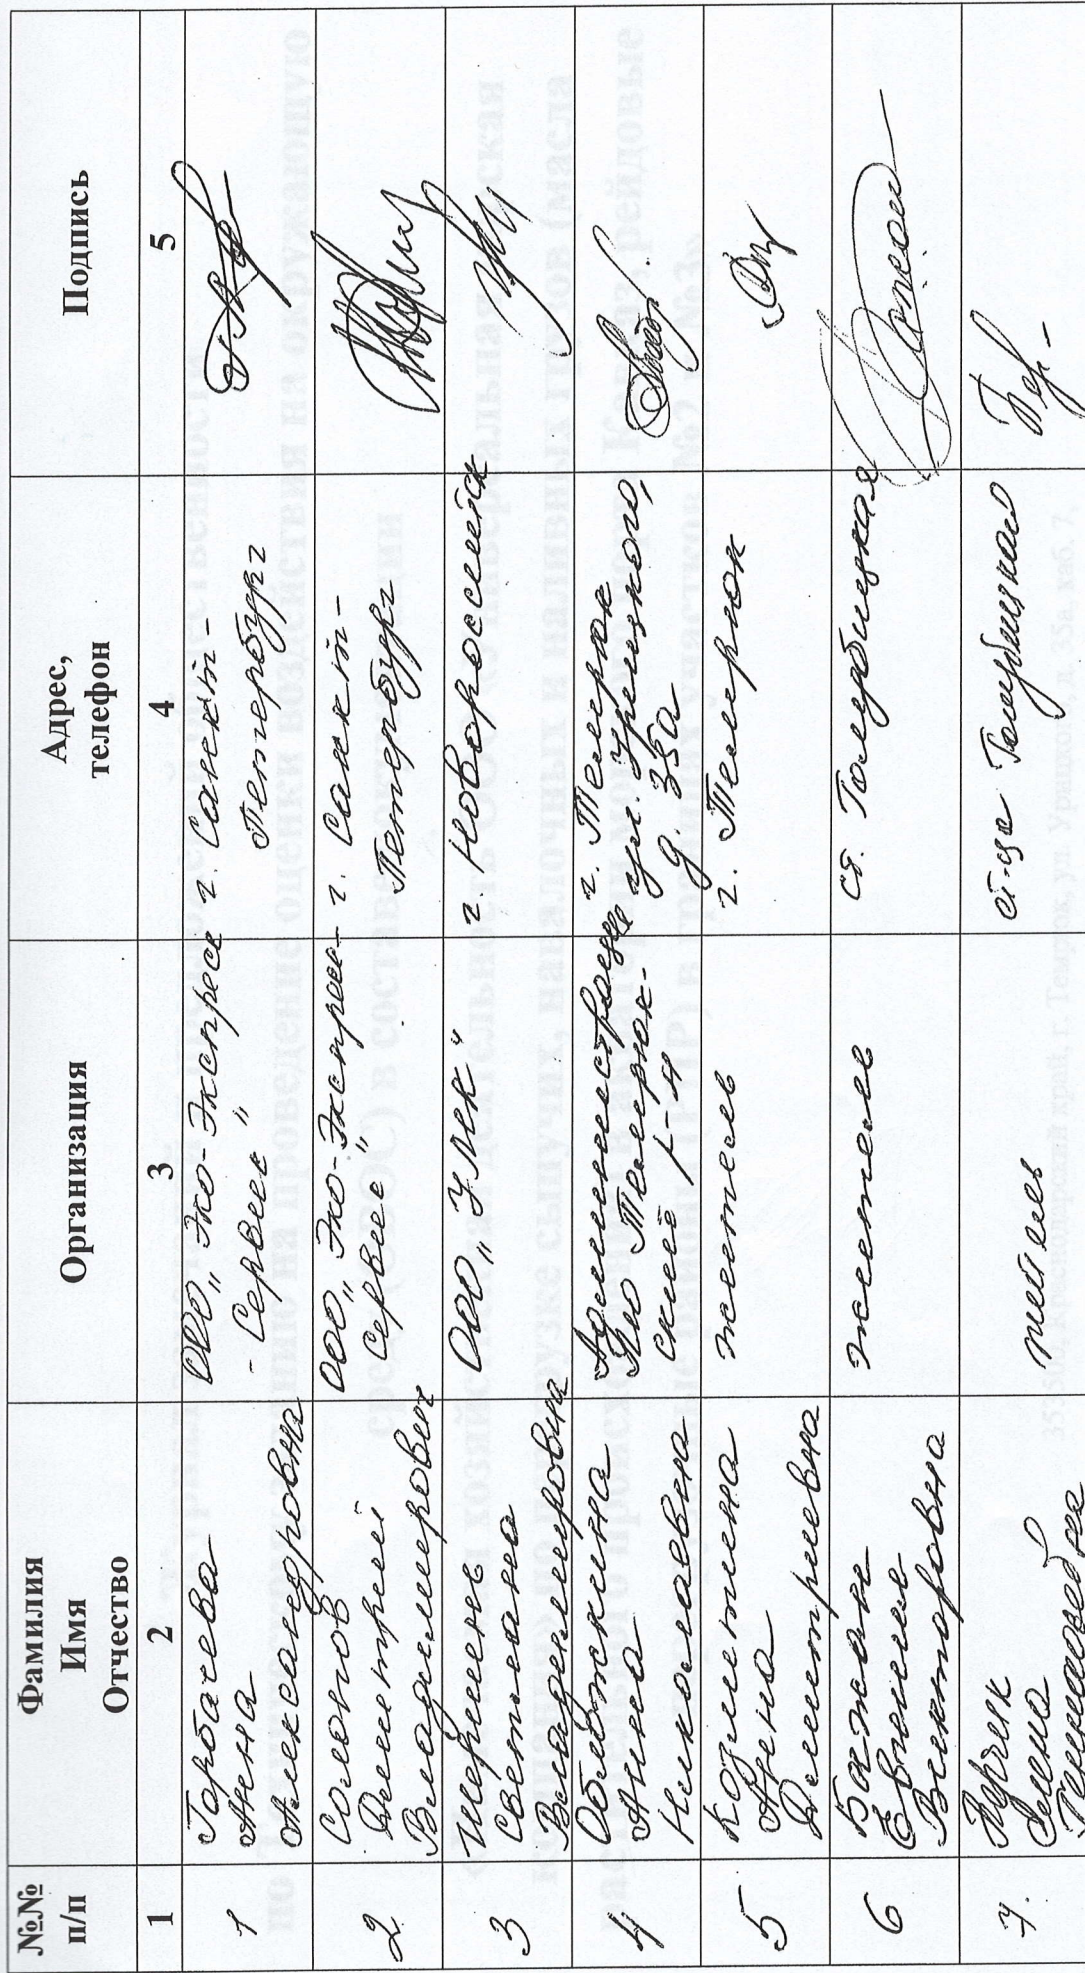 №№ п/п
Фамилия
Имя
Отчество
Организация
Адрес,
телефон
Подпись
1
2
3
4
5
1
Горбачева
Анна
Александровна
ООО „Эко-Экспресс
- Сервис"
г. Санкт-
Петербург
2
Солопов
Дмитрий
Владимирович
ООО „Эко-Экспресс-
Сервис"
г. Санкт-
Петербург
3
Светлана
Владимировна
ООО „УМК"
г. Новороссийск
4
Облогжина
Анна
Николаевна
Администрация
МО Темрюк-
ский р-н
г. Темрюк
ул. Урицкого,
д. 35а
5
Арина
Дмитриевна
житель
г. Темрюк
6
Бажан
Евгения
Викторовна
житель
ст. Голубицкая
7.
житель
ст-ца Голубицкая